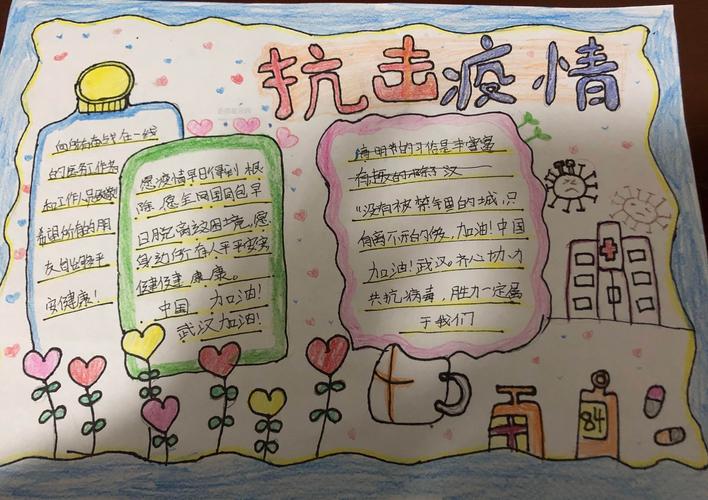 抗击疫情
向所有奋战在一线
的医务作者
和工作人员致敬
希望所有的朋
友自始至平
安健康！
愿疫情早日得到根
除，愿全国同胞早
日脱离困境，愿
身边所有人平平安安
健健康康。
中国 加油！
武汉加油！
清明节的习俗是丰富
有趣的 武汉
"没有被禁牢固的城，只
有离不开的你，加油！中国
加油！武汉。齐心协力
共抗病毒，胜力一定属
于我们
84